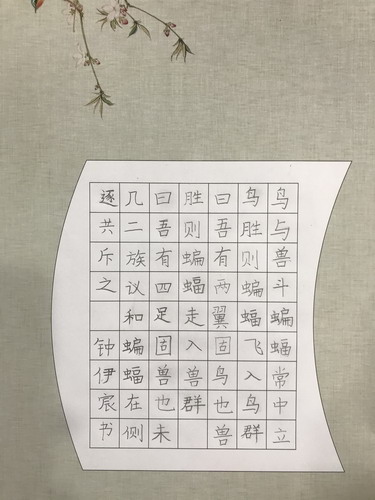 鸟与兽斗蝙蝠常中立
鸟胜则蝙蝠飞入鸟群
曰吾有两翼固鸟也兽
胜则蝙蝠走入兽群
曰吾有四足固兽也未
几二族议和蝙蝠在侧
逐共斥之 钟伊宸书